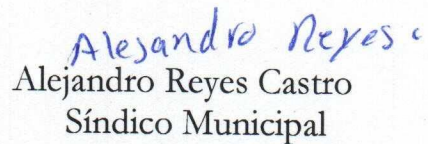 Alejandro Reyes c
Alejandro Reyes Castro
Síndico Municipal